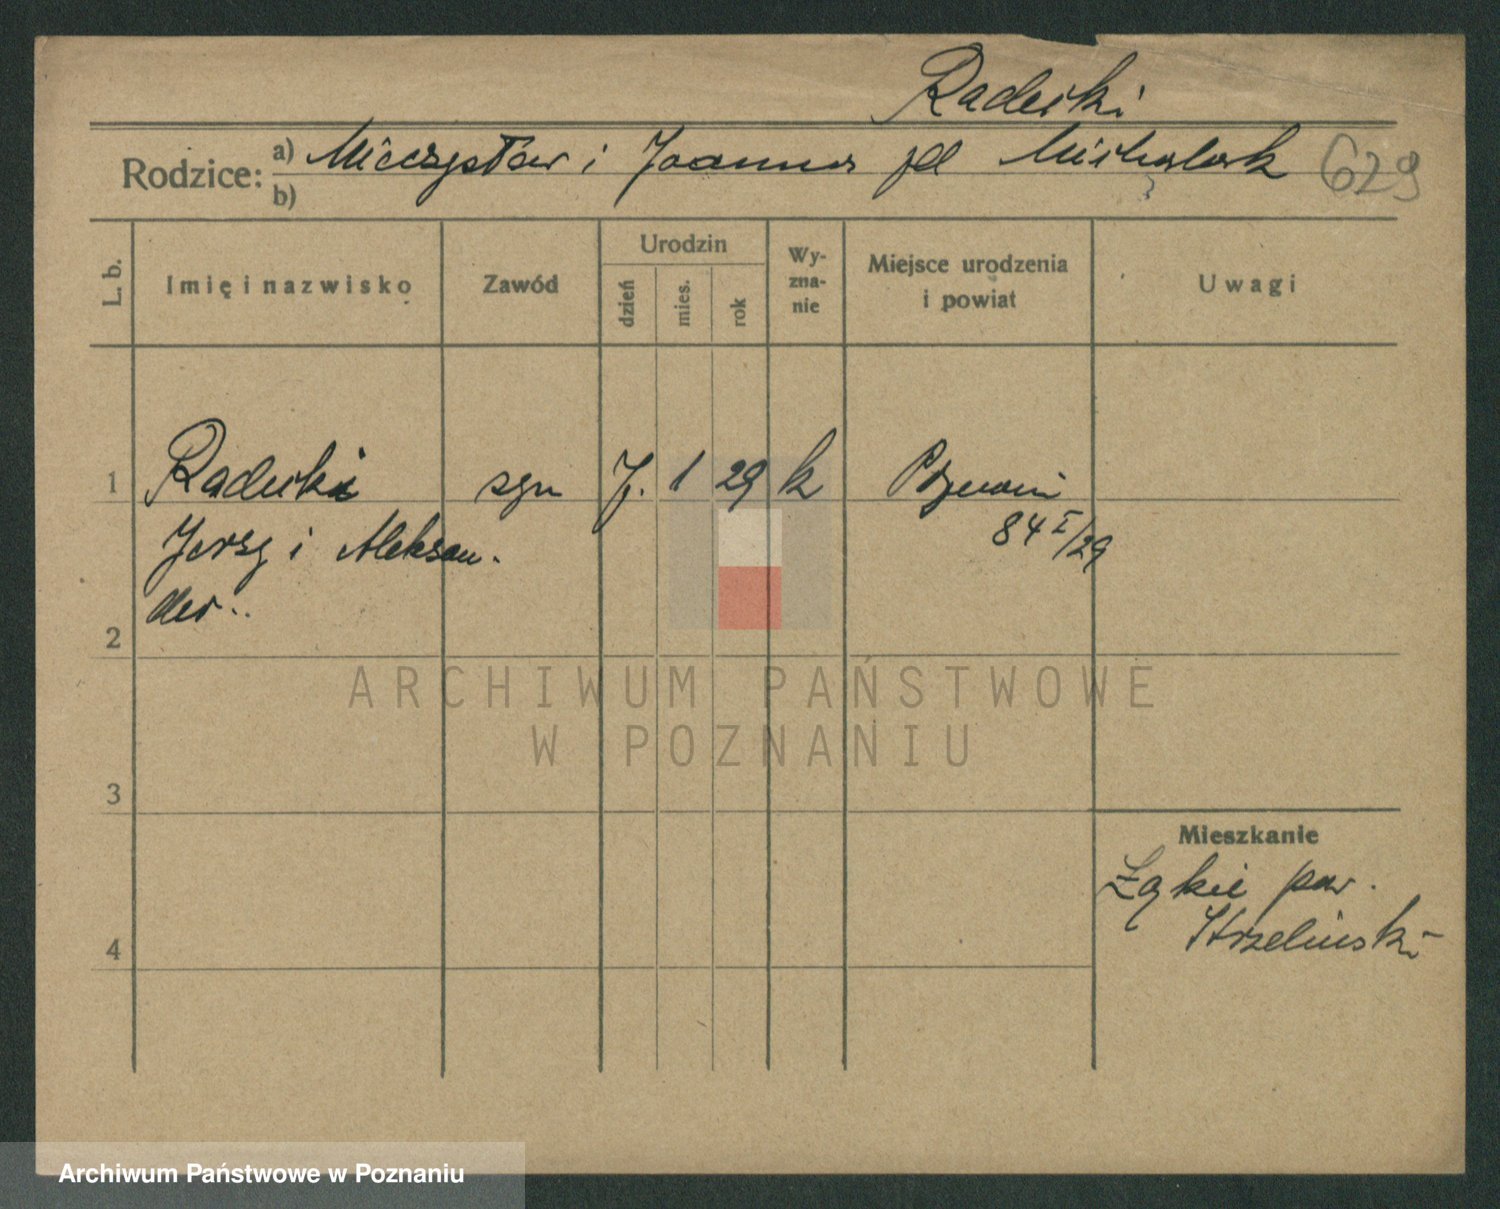 Radecki
Rodzice: a) Mieczysław i Joanna zd Michalak 629
b)
L. b.
Imię i nazwisko
Zawód
Urodzin
dzień
mies.
rok
Wy-
zna-
nie
Miejsce urodzenia
i powiat
Uwagi
1 Radecki syn 7. 1 29 k Poznań
84 I/29
Jerzy i Aleksan-
der..
2
3
4
Mieszkanie
Łąkie pow.
Strzeliński
ARCHIWUM PAŃSTWOWE
W POZNANIU
Archiwum Państwowe w Poznaniu